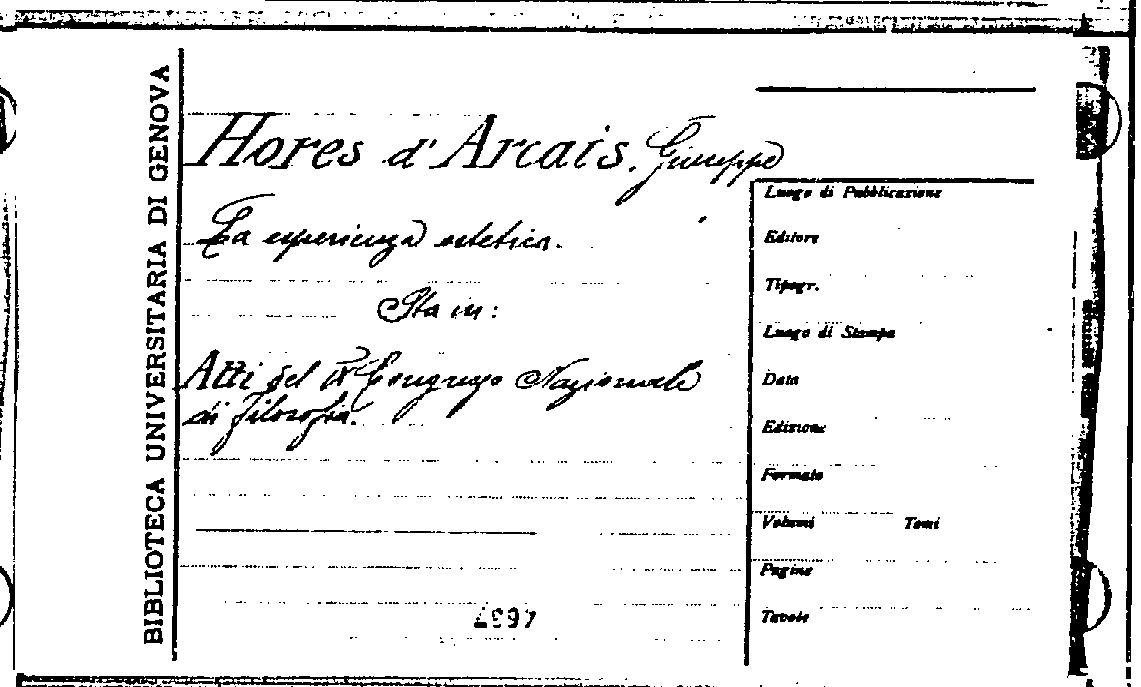 BIBLIOTECA UNIVERSITARIA DI GENOVA
Flores d'Arcais. Giuseppe
La esperienza estetica.
Sta in:
Atti del IX Congresso Nazionale
di filosofia.
Luogo di Pubblicazione
Editore
Tipogr.
Luogo di Stampa
Data
Edizione
Formato
Volumi Tomi
Pagine
Tavole